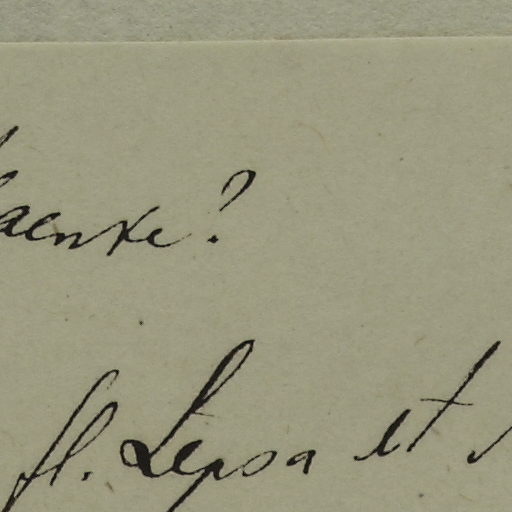 Haenke?
fl. Lepsa et